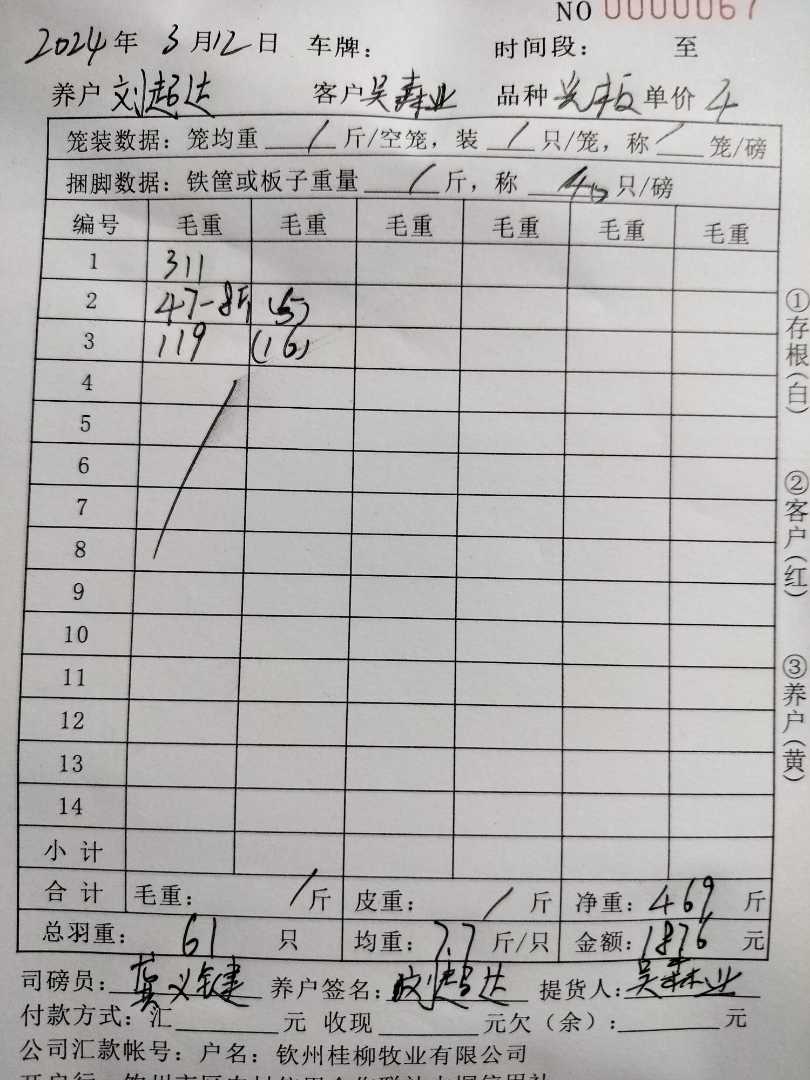 NO 0000067
2024年 3月12日 车牌： 时间段： 至
养户 刘超达 客户 吴森业 品种 单价 4
笼装数据：笼均重 / 斤/空笼，装 / 只/笼，称 / 笼/磅
捆脚数据：铁筐或板子重量 / 斤，称 40 只/磅
编号 毛重 毛重 毛重 毛重 毛重 毛重
1 311
2 47-8斤 (5)
3 119 (16)
4
5
6
7
8
9
10
11
12
13
14
小计
合计 毛重： / 斤 皮重： / 斤 净重：469 斤
总羽重： 61 只 均重：7.7 斤/只 金额：1876 元
司磅员： 养户签名：刘超达 提货人：吴森业
付款方式：汇 元 收现 元欠（余）： 元
公司汇款帐号：户名：钦州桂柳牧业有限公司
①存根（白）
②客户（红）
③养户（黄）